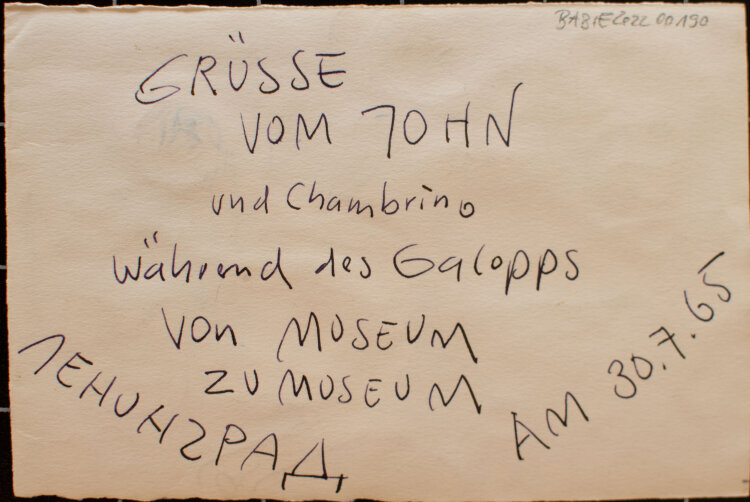 BABIE2022 00190
GRÜSSE
VOM JOHN
und Chambrino
während des Galopps
von MUSEUM
ZU MUSEUM
ЛЕНИНГРАД
AM 30.7.65